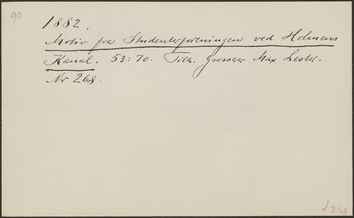 90
1882.
Motiv fra Studenterforeningen ved Holmens
Kanal. 53:70. Tilh. Grosserer Max Lester.
Nr 268.